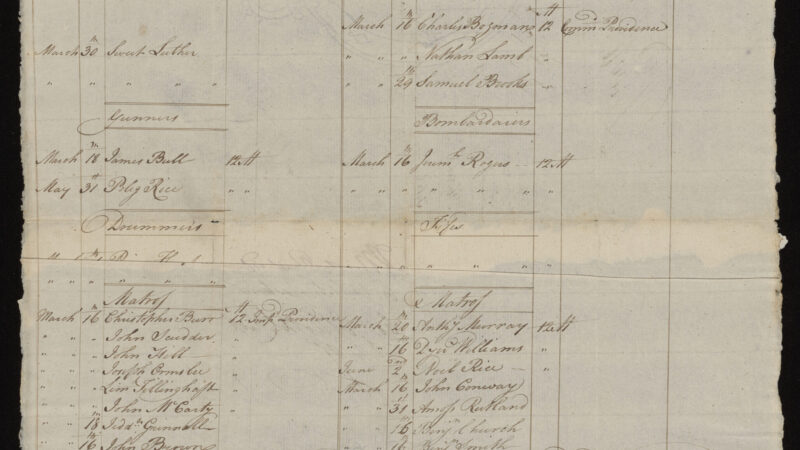 March 16 Charles Bozmans 12 Providence
March 30 Sweet Luther
" " Nathan Lamb "
" " " " 29 Samuel Brooks "
Gunners
Bombardaiers
March 18 James Bull 12 
March 16 Rogers 12
May 31 Pelig Rice " "
" " " "
Drummers
Fifes
" " " "
" " " "
Matross
Matross
March 16 Christopher Burr 12 Providence
March 20 Anthy Murray 12
" " John Scudder "
" 16 Dyer Williams "
" " John Hill "
June 2 Noel Rice "
" " Joseph Ormsbee "
March 16 John Conway
" " Lim Tillinghast "
" " 31 Amos Rutland
" " John McCarty "
" " 16 Benj Church
" 18 Jedd Grinnell
" " 16 Smith
" 16 John Brown